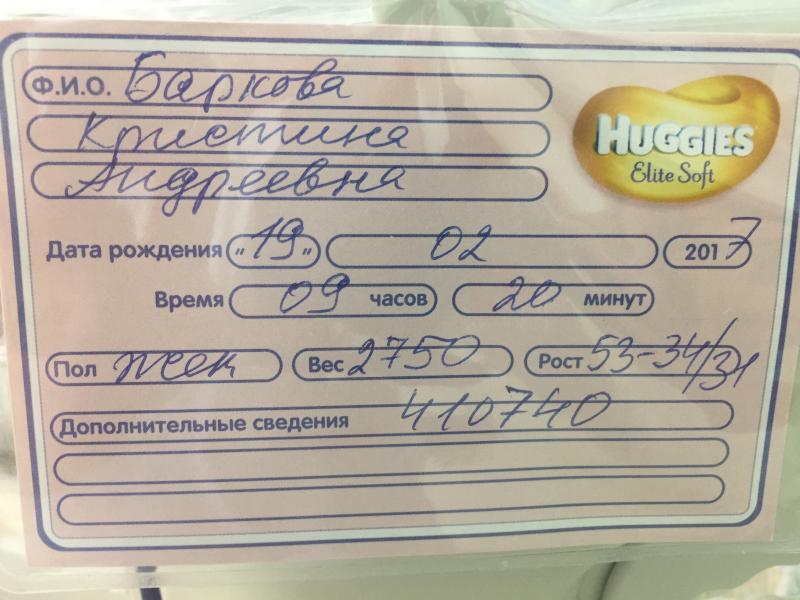 Ф.И.О. Баркова
Кристина
Андреевна
HUGGIES
Elite Soft
Дата рождения „19„ 02 2017
Время 09 часов 20 минут
Пол жен Вес 2750 Рост 53-34/31
Дополнительные сведения 410740